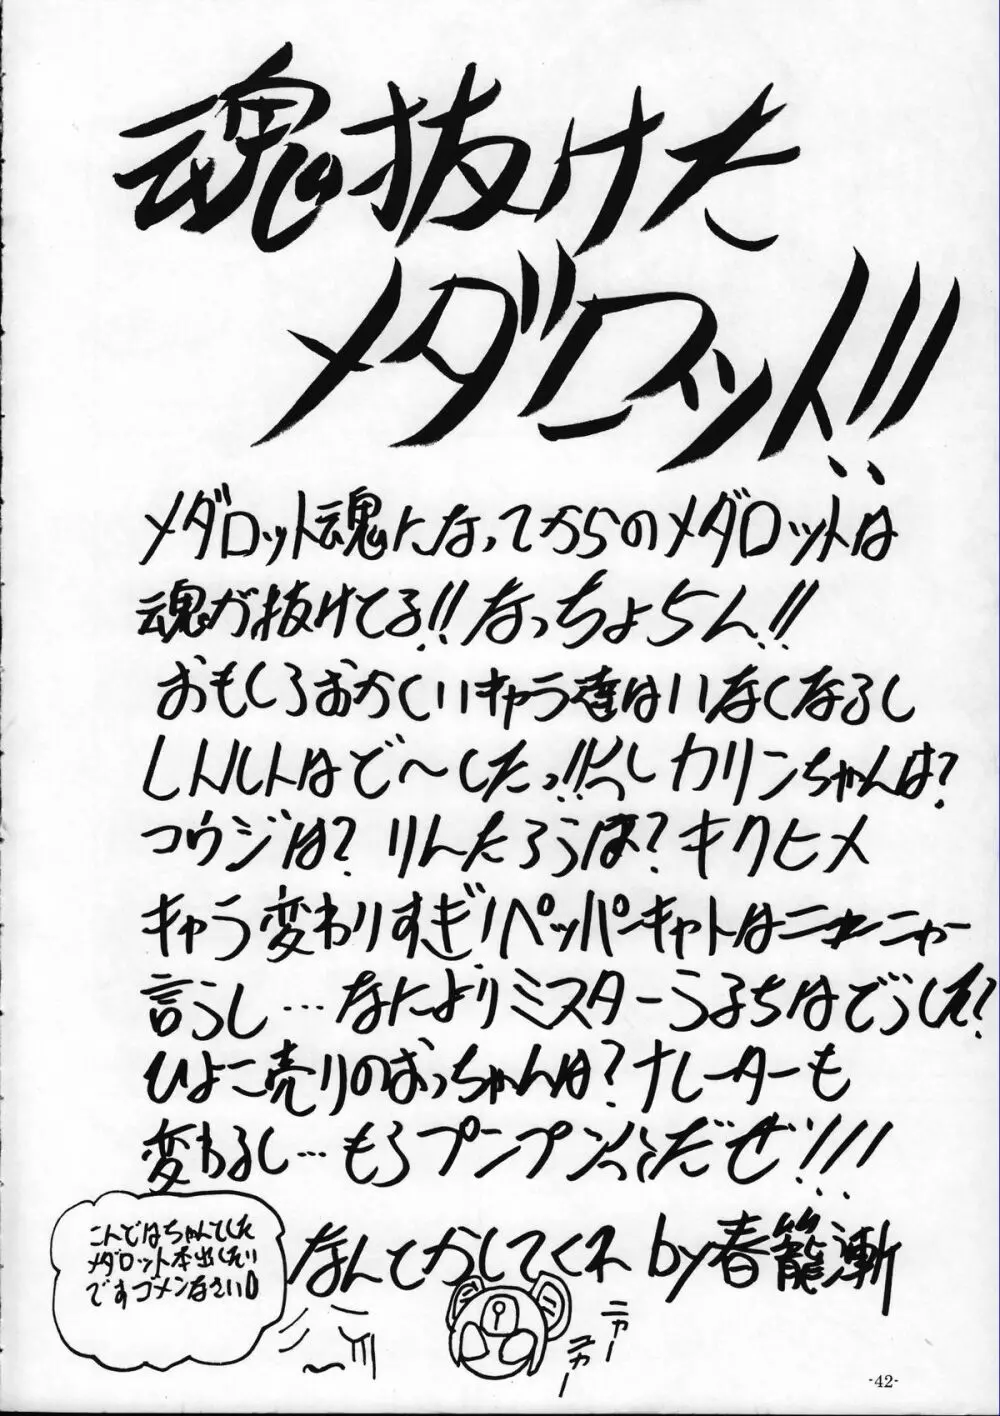 魂抜けた
メダロット!!
メダロット魂になってからのメダロットは
魂が抜けてる!!なっちょらん!!
おもしろおかしいキャラ達はいなくなるし
レトルトはど〜したっ!! カリンちゃんは?
コウジは? りんたろうは? キクヒメ
キャラ変わりすぎ!ペッパーキャットはニャーニャー
言うし…なによりミスターうるちはどうした?
ひよこ売りのおっちゃんは?ナレーターも
変わるし…もうプンプンだぜ!!!
なんとかしてくれ by春籠漸
こんどはちゃんとした
メダロット本出したい
ですゴメンなさい
ニャー
ニャー
-42-